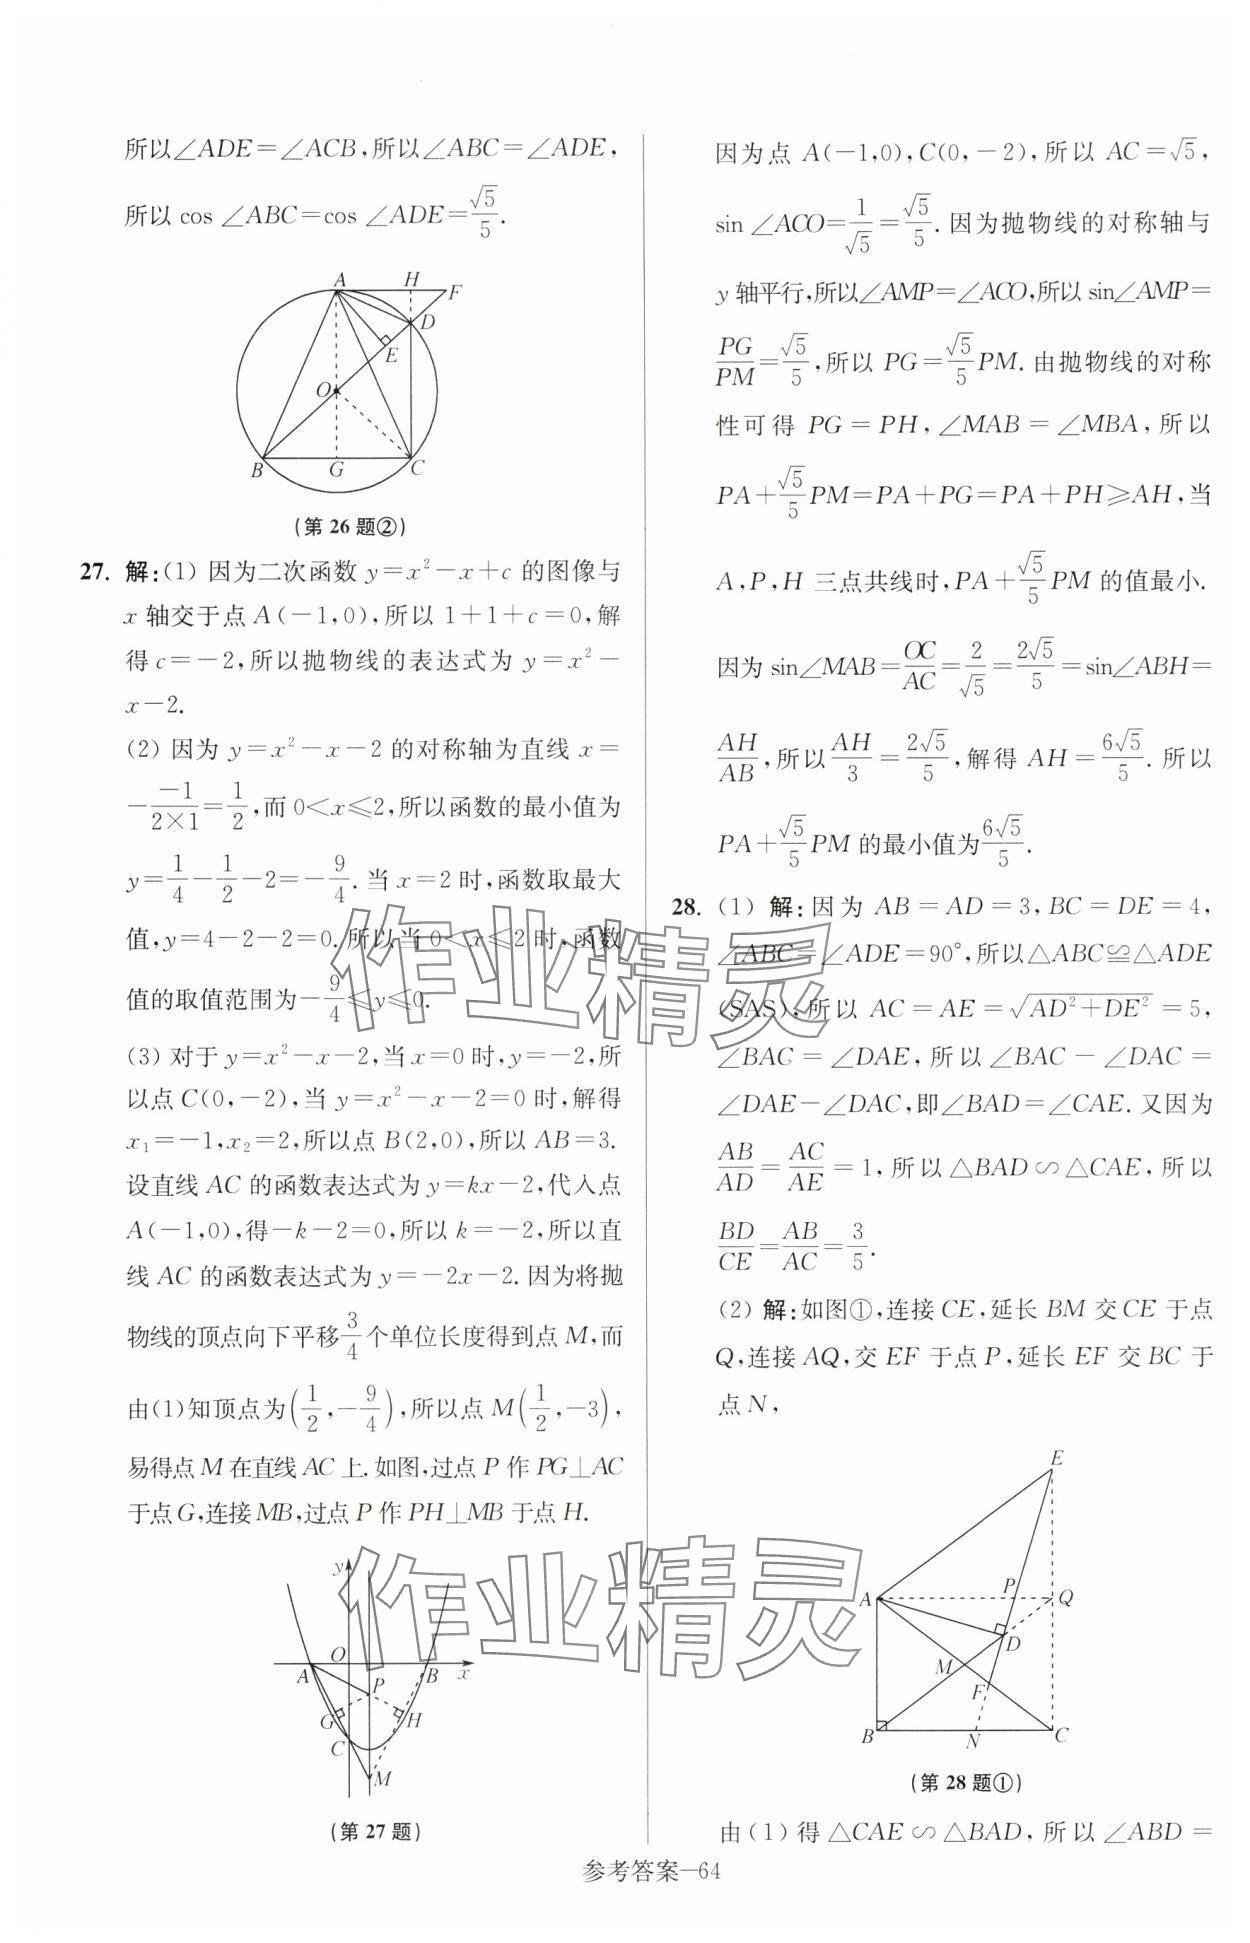 所以∠ADE=∠ACB,所以∠ABC=∠ADE,
所以 cos ∠ABC=cos ∠ADE=√5/5.
A H F
D
E
O
B G C
(第 26 题②)
27. 解:(1) 因为二次函数 y=x²-x+c 的图像与
x 轴交于点 A(-1,0),所以 1+1+c=0,解
得 c=-2,所以抛物线的表达式为 y=x²-
x-2.
(2) 因为 y=x²-x-2 的对称轴为直线 x=
-(-1)/(2×1)=1/2,而 0<x≤2,所以函数的最小值为
y=1/4-1/2-2=-9/4.当 x=2 时,函数取最大
值,y=4-2-2=0.所以当 0<x≤2 时,函数
值的取值范围为-9/4≤y≤0.
(3) 对于 y=x²-x-2,当 x=0 时,y=-2,所
以点 C(0,-2),当 y=x²-x-2=0 时,解得
x₁=-1,x₂=2,所以点 B(2,0),所以 AB=3.
设直线 AC 的函数表达式为 y=kx-2,代入点
A(-1,0),得-k-2=0,所以 k=-2,所以直
线 AC 的函数表达式为 y=-2x-2.因为将抛
物线的顶点向下平移3/4个单位长度得到点 M,而
由(1)知顶点为(1/2,-9/4),所以点 M(1/2,-3),
易得点 M 在直线 AC 上.如图,过点 P 作 PG⊥AC
于点 G,连接 MB,过点 P 作 PH⊥MB 于点 H.
y
A O B x
P
G H
C
M
(第 27 题)
因为点 A(-1,0),C(0,-2),所以 AC=√5,
sin ∠ACO=1/√5=√5/5.因为抛物线的对称轴与
y 轴平行,所以∠AMP=∠ACO,所以 sin∠AMP=
PG/PM=√5/5,所以 PG=√5/5PM.由抛物线的对称
性可得 PG=PH,∠MAB=∠MBA,所以
PA+√5/5PM=PA+PG=PA+PH≥AH,当
A,P,H 三点共线时,PA+√5/5PM 的值最小.
因为 sin∠MAB=OC/AC=2/√5=2√5/5=sin∠ABH=
AH/AB,所以AH/3=2√5/5,解得 AH=6√5/5.所以
PA+√5/5PM 的最小值为6√5/5.
28. (1) 解:因为 AB=AD=3,BC=DE=4,
∠ABC=∠ADE=90°,所以△ABC≌△ADE
(SAS),所以 AC=AE=√(AD²+DE²)=5,
∠BAC=∠DAE,所以∠BAC-∠DAC=
∠DAE-∠DAC,即∠BAD=∠CAE.又因为
AB/AD=AC/AE=1,所以△BAD∽△CAE,所以
BD/CE=AB/AC=3/5.
(2) 解:如图①,连接 CE,延长 BM 交 CE 于点
Q,连接 AQ,交 EF 于点 P,延长 EF 交 BC 于
点 N,
E
A P Q
D
M
F
B N C
(第 28 题①)
由(1)得△CAE∽△BAD,所以∠ABD=
参考答案—64
作业精灵
作业精灵